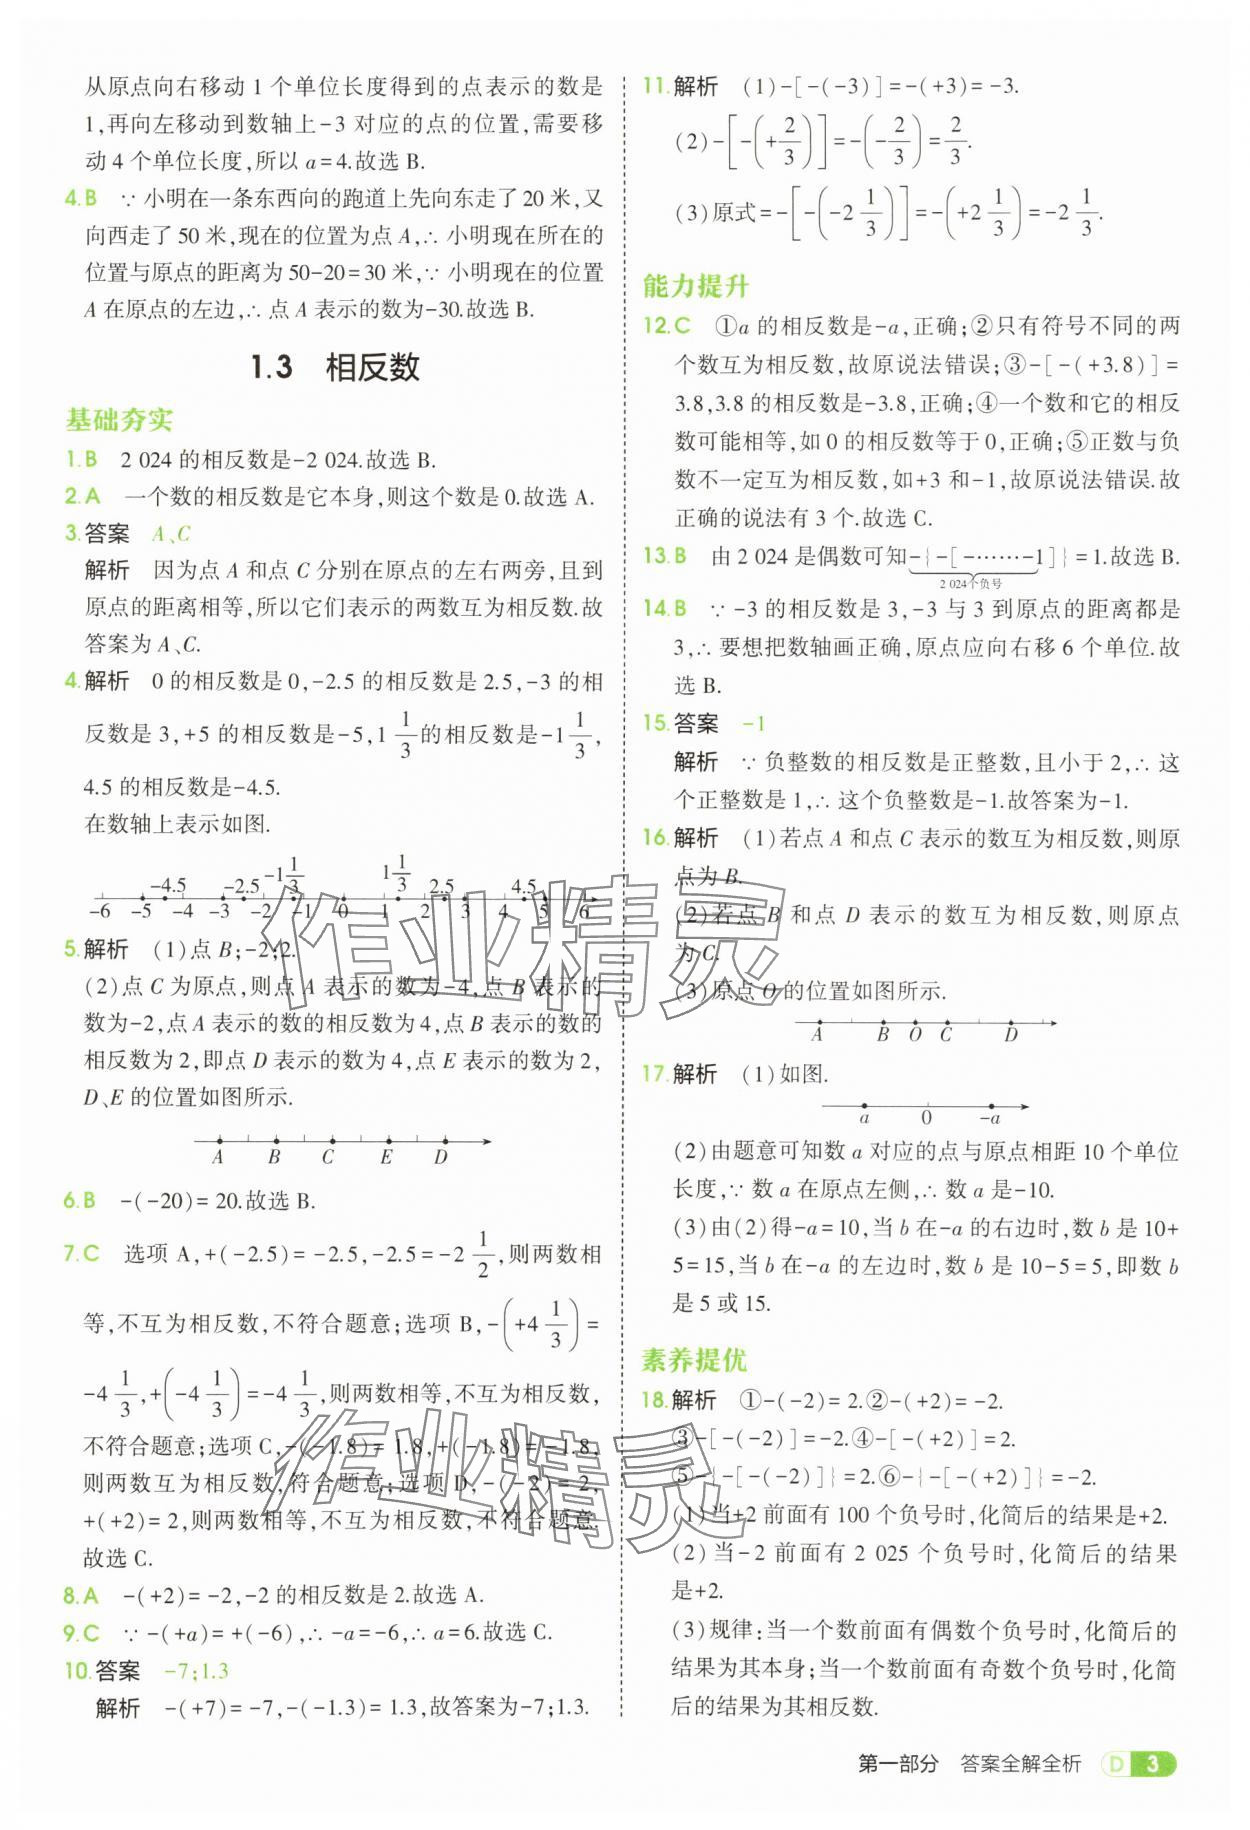 从原点向右移动 1 个单位长度得到的点表示的数是
1,再向左移动到数轴上-3 对应的点的位置,需要移
动 4 个单位长度,所以 a=4.故选 B.
4.B ∵ 小明在一条东西向的跑道上先向东走了 20 米,又
向西走了 50 米,现在的位置为点 A,∴ 小明现在所在的
位置与原点的距离为 50-20=30 米,∵ 小明现在的位置
A 在原点的左边,∴ 点 A 表示的数为-30.故选 B.
1.3 相反数
基础夯实
1.B 2 024 的相反数是-2 024.故选 B.
2.A 一个数的相反数是它本身,则这个数是 0.故选 A.
3.答案 A、C
解析 因为点 A 和点 C 分别在原点的左右两旁,且到
原点的距离相等,所以它们表示的两数互为相反数.故
答案为 A、C.
4.解析 0 的相反数是 0,-2.5 的相反数是 2.5,-3 的相
反数是 3,+5 的相反数是-5,1 1/3 的相反数是-1 1/3,
4.5 的相反数是-4.5.
在数轴上表示如图.
-4.5 -2.5 -1 1/3 1 1/3 2.5 4.5
-6 -5 -4 -3 -2 -1 0 1 2 3 4 5 6
5.解析 (1)点 B;-2;2.
(2)点 C 为原点,则点 A 表示的数为-4,点 B 表示的
数为-2,点 A 表示的数的相反数为 4,点 B 表示的数的
相反数为 2,即点 D 表示的数为 4,点 E 表示的数为 2,
D、E 的位置如图所示.
A B C E D
6.B -(-20)=20.故选 B.
7.C 选项 A,+(-2.5)=-2.5,-2.5=-2 1/2,则两数相
等,不互为相反数,不符合题意;选项 B,-(+4 1/3)=
-4 1/3,+(-4 1/3)=-4 1/3,则两数相等,不互为相反数,
不符合题意;选项 C,-(-1.8)=1.8,+(-1.8)=-1.8,
则两数互为相反数,符合题意;选项 D,-(-2)=2,
+(+2)=2,则两数相等,不互为相反数,不符合题意.
故选 C.
8.A -(+2)=-2,-2 的相反数是 2.故选 A.
9.C ∵ -(+a)=+(-6),∴ -a=-6,∴ a=6.故选 C.
10.答案 -7;1.3
解析 -(+7)=-7,-(-1.3)=1.3,故答案为-7;1.3.
11.解析 (1)-[-(-3)]=-(+3)=-3.
(2)-[-(+2/3)]=-(-2/3)=2/3.
(3)原式=-[-(-2 1/3)]=-(+2 1/3)=-2 1/3.
能力提升
12.C ①a 的相反数是-a,正确;②只有符号不同的两
个数互为相反数,故原说法错误;③-[-(+3.8)]=
3.8,3.8 的相反数是-3.8,正确;④一个数和它的相反
数可能相等,如 0 的相反数等于 0,正确;⑤正数与负
数不一定互为相反数,如+3 和-1,故原说法错误.故
正确的说法有 3 个.故选 C.
13.B 由 2 024 是偶数可知-{-[-……-1]}=1.故选 B.
2 024个负号
14.B ∵ -3 的相反数是 3,-3 与 3 到原点的距离都是
3,∴ 要想把数轴画正确,原点应向右移 6 个单位.故
选 B.
15.答案 -1
解析 ∵ 负整数的相反数是正整数,且小于 2,∴ 这
个正整数是 1,∴ 这个负整数是-1.故答案为-1.
16.解析 (1)若点 A 和点 C 表示的数互为相反数,则原
点为 B.
(2)若点 B 和点 D 表示的数互为相反数,则原点
为 C.
(3)原点 O 的位置如图所示.
A B O C D
17.解析 (1)如图.
a 0 -a
(2)由题意可知数 a 对应的点与原点相距 10 个单位
长度,∵ 数 a 在原点左侧,∴ 数 a 是-10.
(3)由(2)得-a=10,当 b 在-a 的右边时,数 b 是 10+
5=15,当 b 在-a 的左边时,数 b 是 10-5=5,即数 b
是 5 或 15.
素养提优
18.解析 ①-(-2)=2.②-(+2)=-2.
③-[-(-2)]=-2.④-[-(+2)]=2.
⑤-{-[-(-2)]}=2.⑥-{-[-(+2)]}=-2.
(1)当+2 前面有 100 个负号时,化简后的结果是+2.
(2)当-2 前面有 2 025 个负号时,化简后的结果
是+2.
(3)规律:当一个数前面有偶数个负号时,化简后的
结果为其本身;当一个数前面有奇数个负号时,化简
后的结果为其相反数.
作业精灵
作业精灵
第一部分 答案全解全析 D 3